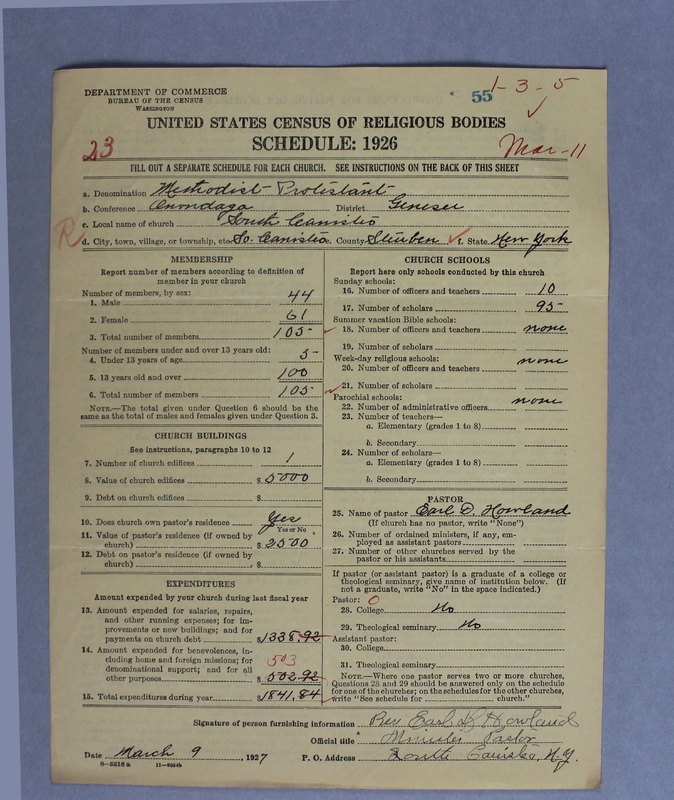 DEPARTMENT OF COMMERCE
BUREAU OF THE CENSUS
WASHINGTON
55
1-3-5
UNITED STATES CENSUS OF RELIGIOUS BODIES
SCHEDULE: 1926
23
Mar-11
FILL OUT A SEPARATE SCHEDULE FOR EACH CHURCH. SEE INSTRUCTIONS ON THE BACK OF THIS SHEET
a. Denomination Methodist Protestant
b. Conference Onondaga District Genesee
c. Local name of church South Canisteo
R d. City, town, village, or township, etc. So. Canisteo e. County Steuben f. State New York
MEMBERSHIP
Report number of members according to definition of
member in your church
Number of members, by sex:
1. Male 44
2. Female 61
3. Total number of members 105
Number of members under and over 13 years old:
4. Under 13 years of age 5
5. 13 years old and over 100
6. Total number of members 105
NOTE.—The total given under Question 6 should be
same as the total of males and females given under Question 3.
CHURCH BUILDINGS
See instructions, paragraphs 10 to 12
7. Number of church edifices 1
8. Value of church edifices $5000
9. Debt on church edifices $
10. Does church own pastor's residence Yes
Yes or No
11. Value of pastor's residence (if owned by
church) $2500
12. Debt on pastor's residence (if owned by
church) $
EXPENDITURES
Amount expended by your church during last fiscal year
13. Amount expended for salaries, repairs,
and other running expenses; for im-
provements or new buildings; and for
payments on church debt $1338.92
14. Amount expended for benevolences, in-
cluding home and foreign missions; for 503
denominational support; and for all
other purposes $502.92
15. Total expenditures during year $1841.84
CHURCH SCHOOLS
Report here only schools conducted by this church
Sunday schools:
16. Number of officers and teachers 10
17. Number of scholars 95
Summer vacation Bible schools:
18. Number of officers and teachers none
19. Number of scholars
Week-day religious schools: none
20. Number of officers and teachers
21. Number of scholars
Parochial schools: none
22. Number of administrative officers
23. Number of teachers—
a. Elementary (grades 1 to 8)
b. Secondary
24. Number of scholars—
a. Elementary (grades 1 to 8)
b. Secondary
PASTOR
25. Name of pastor Earl D. Howland
(If church has no pastor, write "None")
26. Number of ordained ministers, if any, em-
ployed as assistant pastors
27. Number of other churches served by the
pastor or his assistants
If pastor (or assistant pastor) is a graduate of a college or
theological seminary, give name of institution below. (If
not a graduate, write "No" in the space indicated.)
Pastor: 0
28. College No
29. Theological seminary No
Assistant pastor:
30. College
31. Theological seminary
NOTE.—Where one pastor serves two or more churches,
Questions 28 and 29 should be answered only on the schedule
for one of the churches; on the schedules for the other churches,
write "See schedule for church."
Signature of person furnishing information Rev Earl D. Howland
Official title Minister Pastor
Date March 9, 1927 P. O. Address South Canisteo, N.Y.
8-5518a 11-9554b